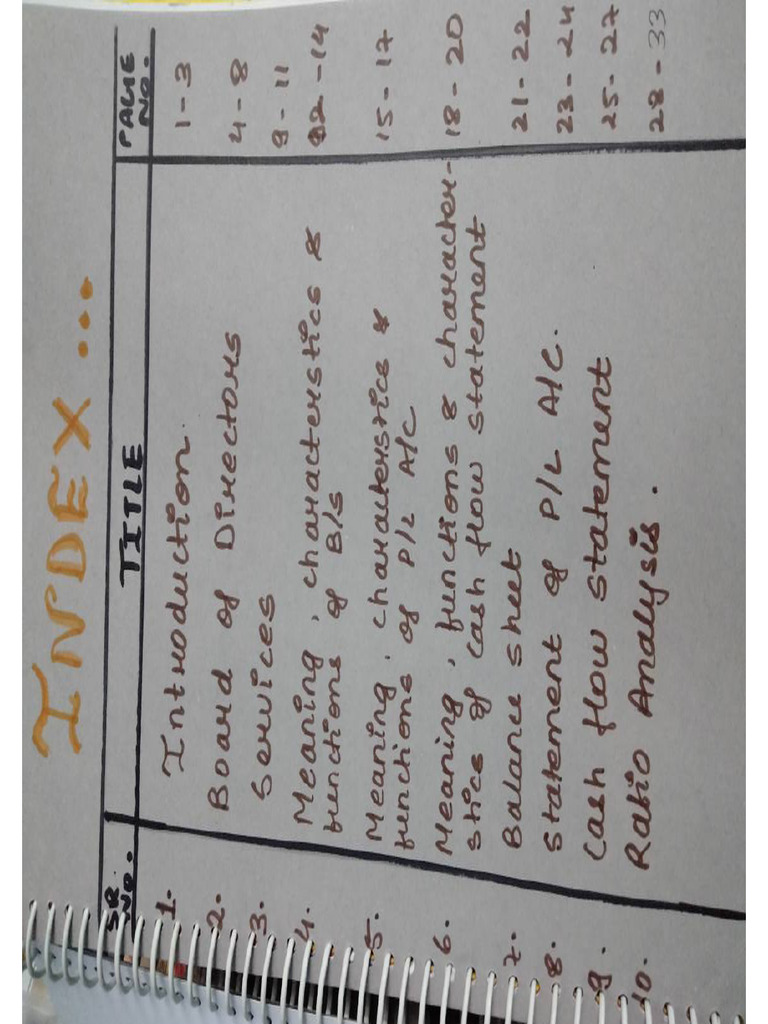 INDEX...
SR. NO. TITLE PAGE NO.
1. Introduction. 1-3
2. Board of Directors 4-8
3. Services 9-11
4. Meaning, characterstics & 12-14
functions of B/S
5. Meaning, characterstics & 15-17
functions of P/L A/C
6. Meaning, functions & character- 18-20
stics of cash flow statement
7. Balance sheet 21-22
8. Statement of P/L A/C. 23-24
9. Cash flow statement 25-27
10. Ratio Analysis. 28-33